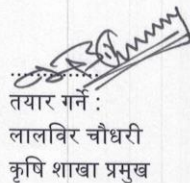 तयार गर्ने :
लालविर चौधरी
कृषि शाखा प्रमुख